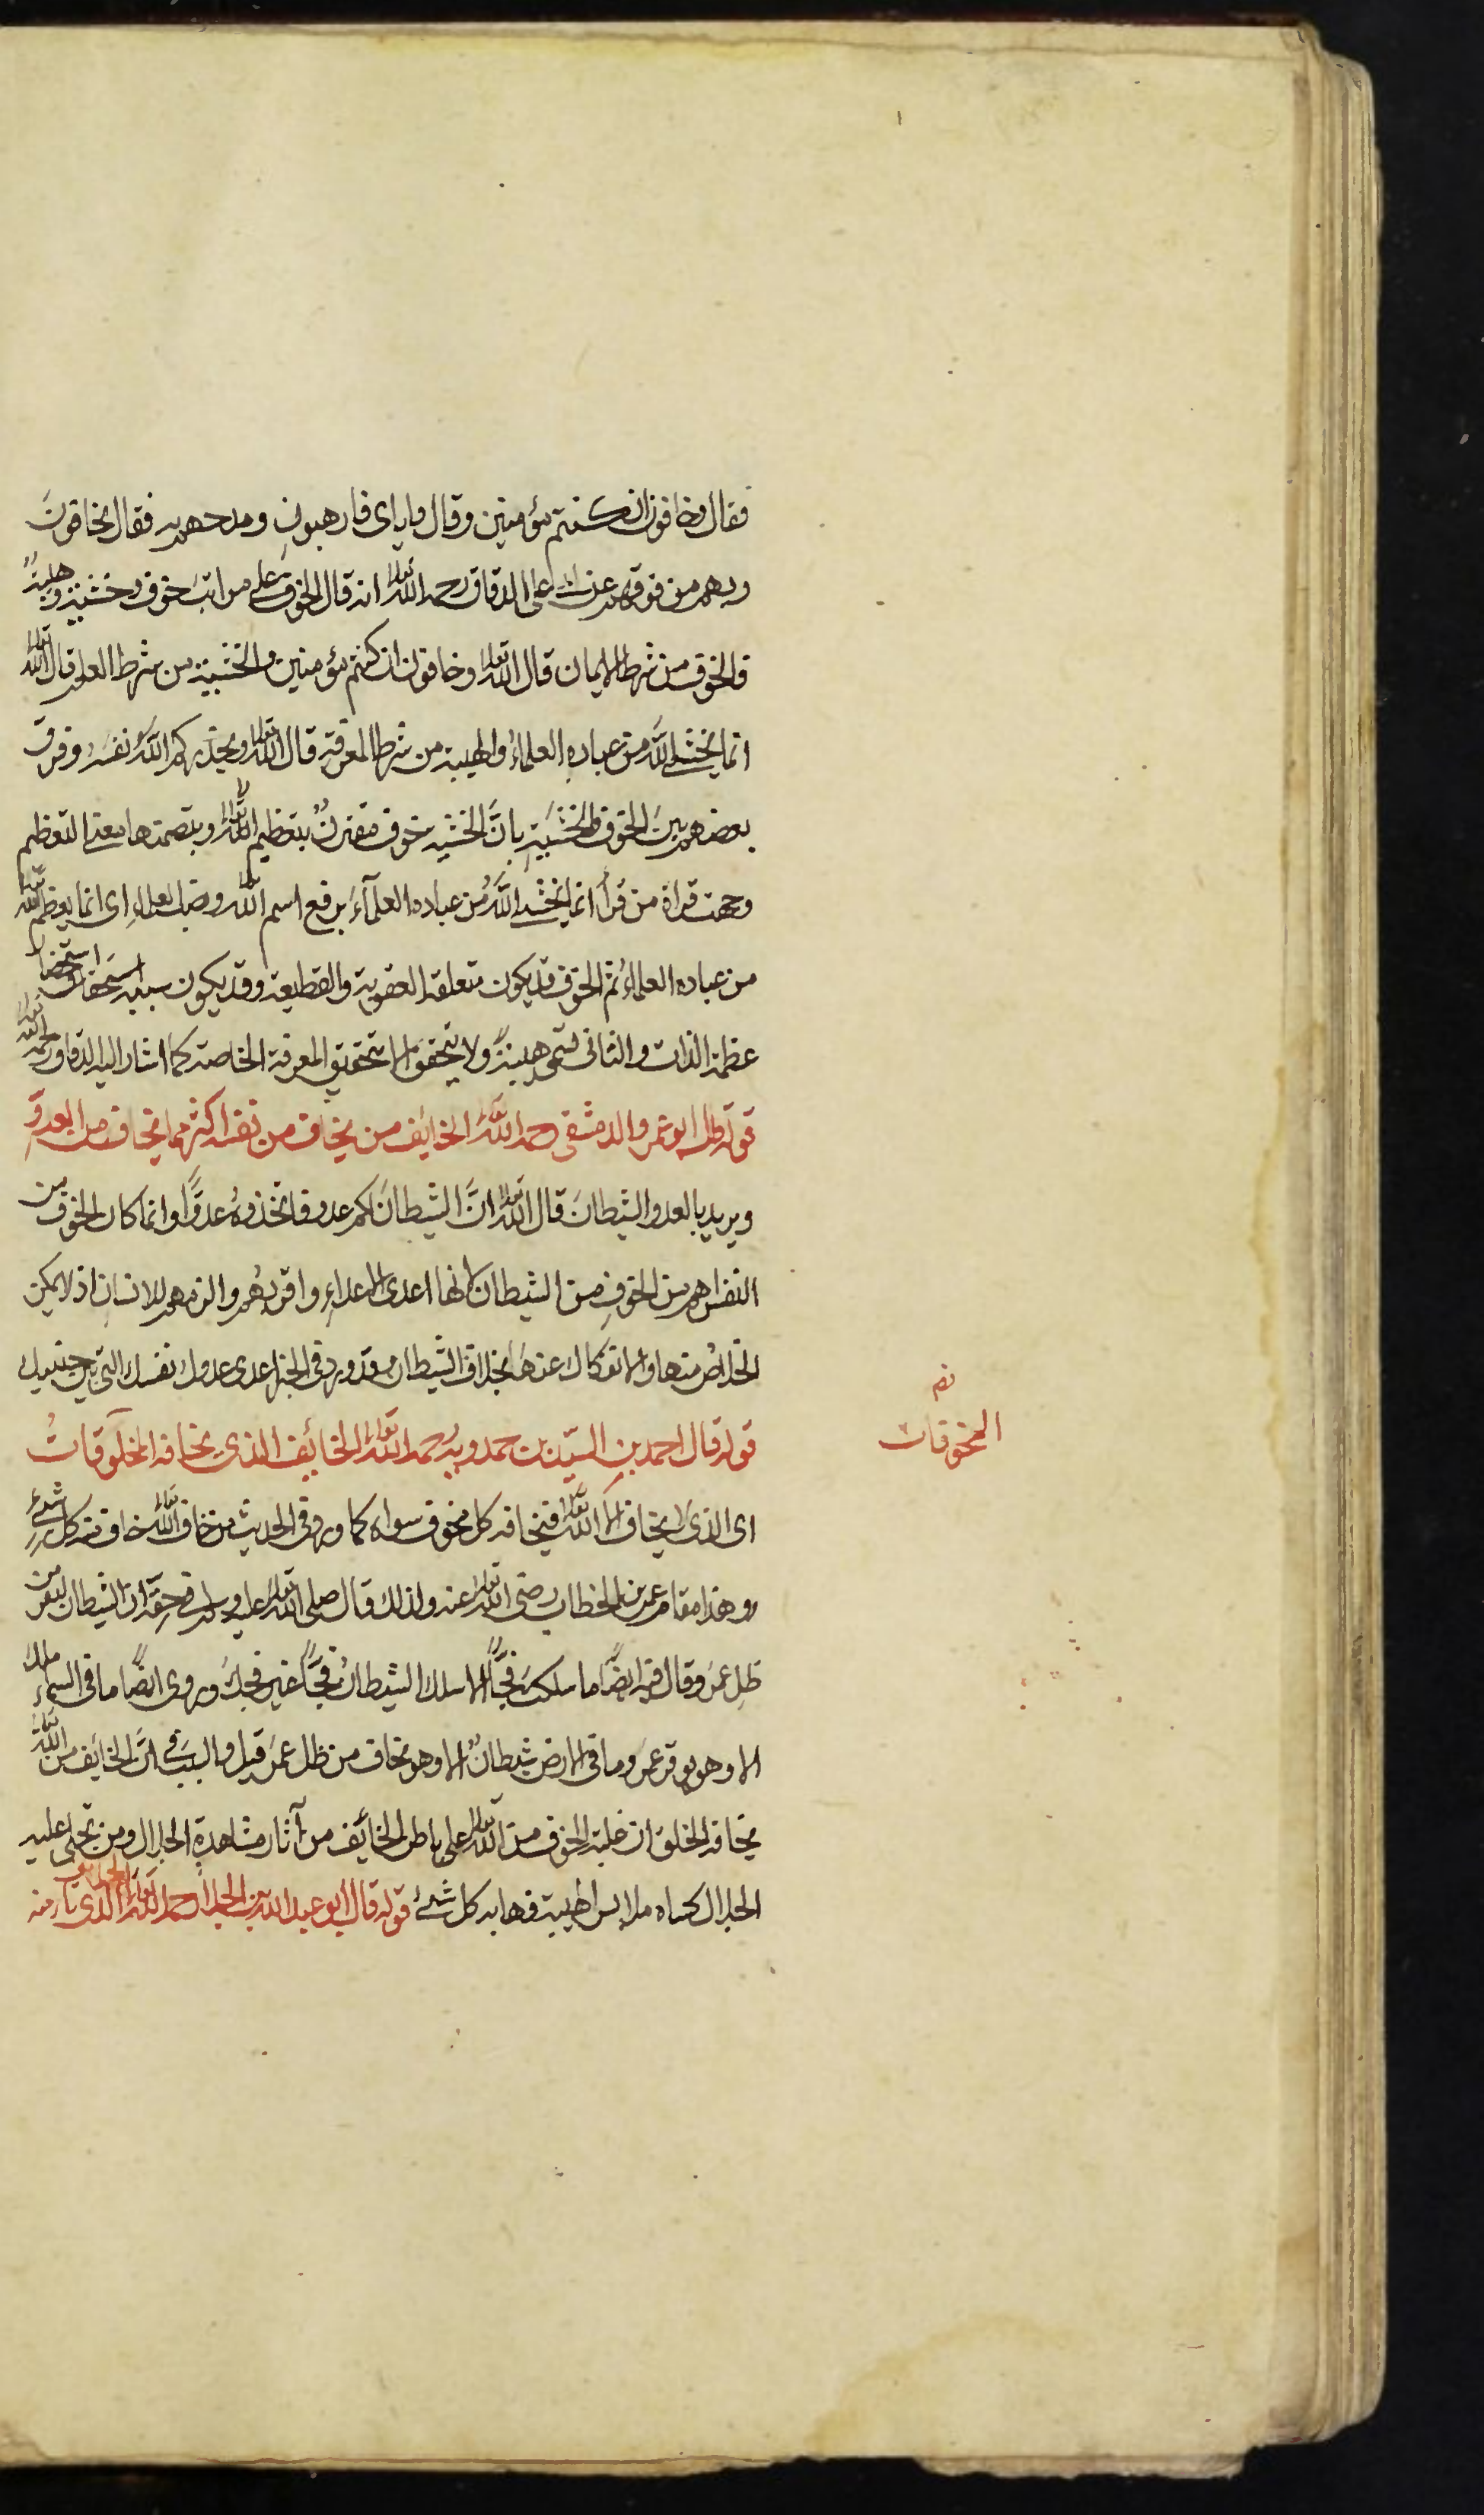 فقال وخافون ان كنتم مؤمنين وقال واياى فارهبون ومدحهم به فقال يخافون
ربهم من فوقهم عن ابى على الدقاق رحمه الله تعالى انه قال الخوف على مراتب خوف وخشية وهيبة
فالخوف من شرط الايمان قال الله تعالى وخافون ان كنتم مؤمنين والخشية من شرط العلم قال الله تعالى
انما يخشى الله من عباده العلماءُ والهيبة من شرط المعرفة قال الله تعالى ويحذركم الله نفسه وفرق
بعضهم بين الخوف والخشية بانَّ الخشية خوف مقترنٌ بتعظيم الله تعالى وبتضمنها معنى التعظيم
وجهت قراة من قرأ انما يخشى اللهُ من عباده العلمآءَ برفع اسم الله ونصب العلماء اى انما يعظم الله تعالى
من عباده العلماءُ ثم الخوف قد يكون متعلقه العقوبة والقطيعة وقد يكون سببه استحضار
عظمة الذات والثانى يسمى هيبةً ولا يتحقق الا بتحقيق المعرفة الخاصة كما اشار اليه الدقاق رحمه الله تعالى
قوله قال ابو عمرو الدمشقى رحمه الله تعالى الخايف من يخاف من نفسه اكثر مما يخاف من العدوّ
ويريد بالعدو الشيطانَ قال الله تعالى انَّ الشيطانَ لكم عدو فاتخذوهُ عدوًّا وانما كان الخوف من
النفس اهم من الخوفِ من الشيطان لانها اعدى الاعداءِ واقربهُم والزمهم للانسان اذ لا يمكن
الخلاصُ منها والانفكاك عنها بخلاف الشيطان وقد ورد فى الخبر اعدى عدوك نفسك التى بين جنبيك
قوله قال احمد بن السيّد بن حمدويه رحمه الله تعالى الخائف الذى يخافه المخلوقاتُ
نم
المخوفات
اى الذى لا يخاف الا الله تعالى فيخافه كل مخوف سواه كما ورد فى الحديث من خاف الله تعالى خاف منه كل شئ
وهذا مقام عمر بن الخطاب رضى الله تعالى عنه ولذلك قال صلى الله تعالى عليه وسلم فى حقه ان الشيطان ليفر من
ظل عمر وقال فيه ايضًا ما سلكتَ فجًّا الا سلك الشيطانُ فجًّا غير فجك وروى ايضًا ما فى السماء ملك
الا وهو يوقر عمر وما فى الارض شيطانٌ الا وهو يخاف من ظل عمر قيل والسبب فى انَّ الخائف من الله تعالى
يخافه الخلق ان غلبة الخوف من الله تعالى على باطن الخائف من آثار مشاهدة الجلال ومن تجلى عليه
الجلال كساه ملابس الهيبة فهابه كل شئ قوله قال ابو عبد الله بن الجلا رحمه الله تعالى الخايف الذى تامنه